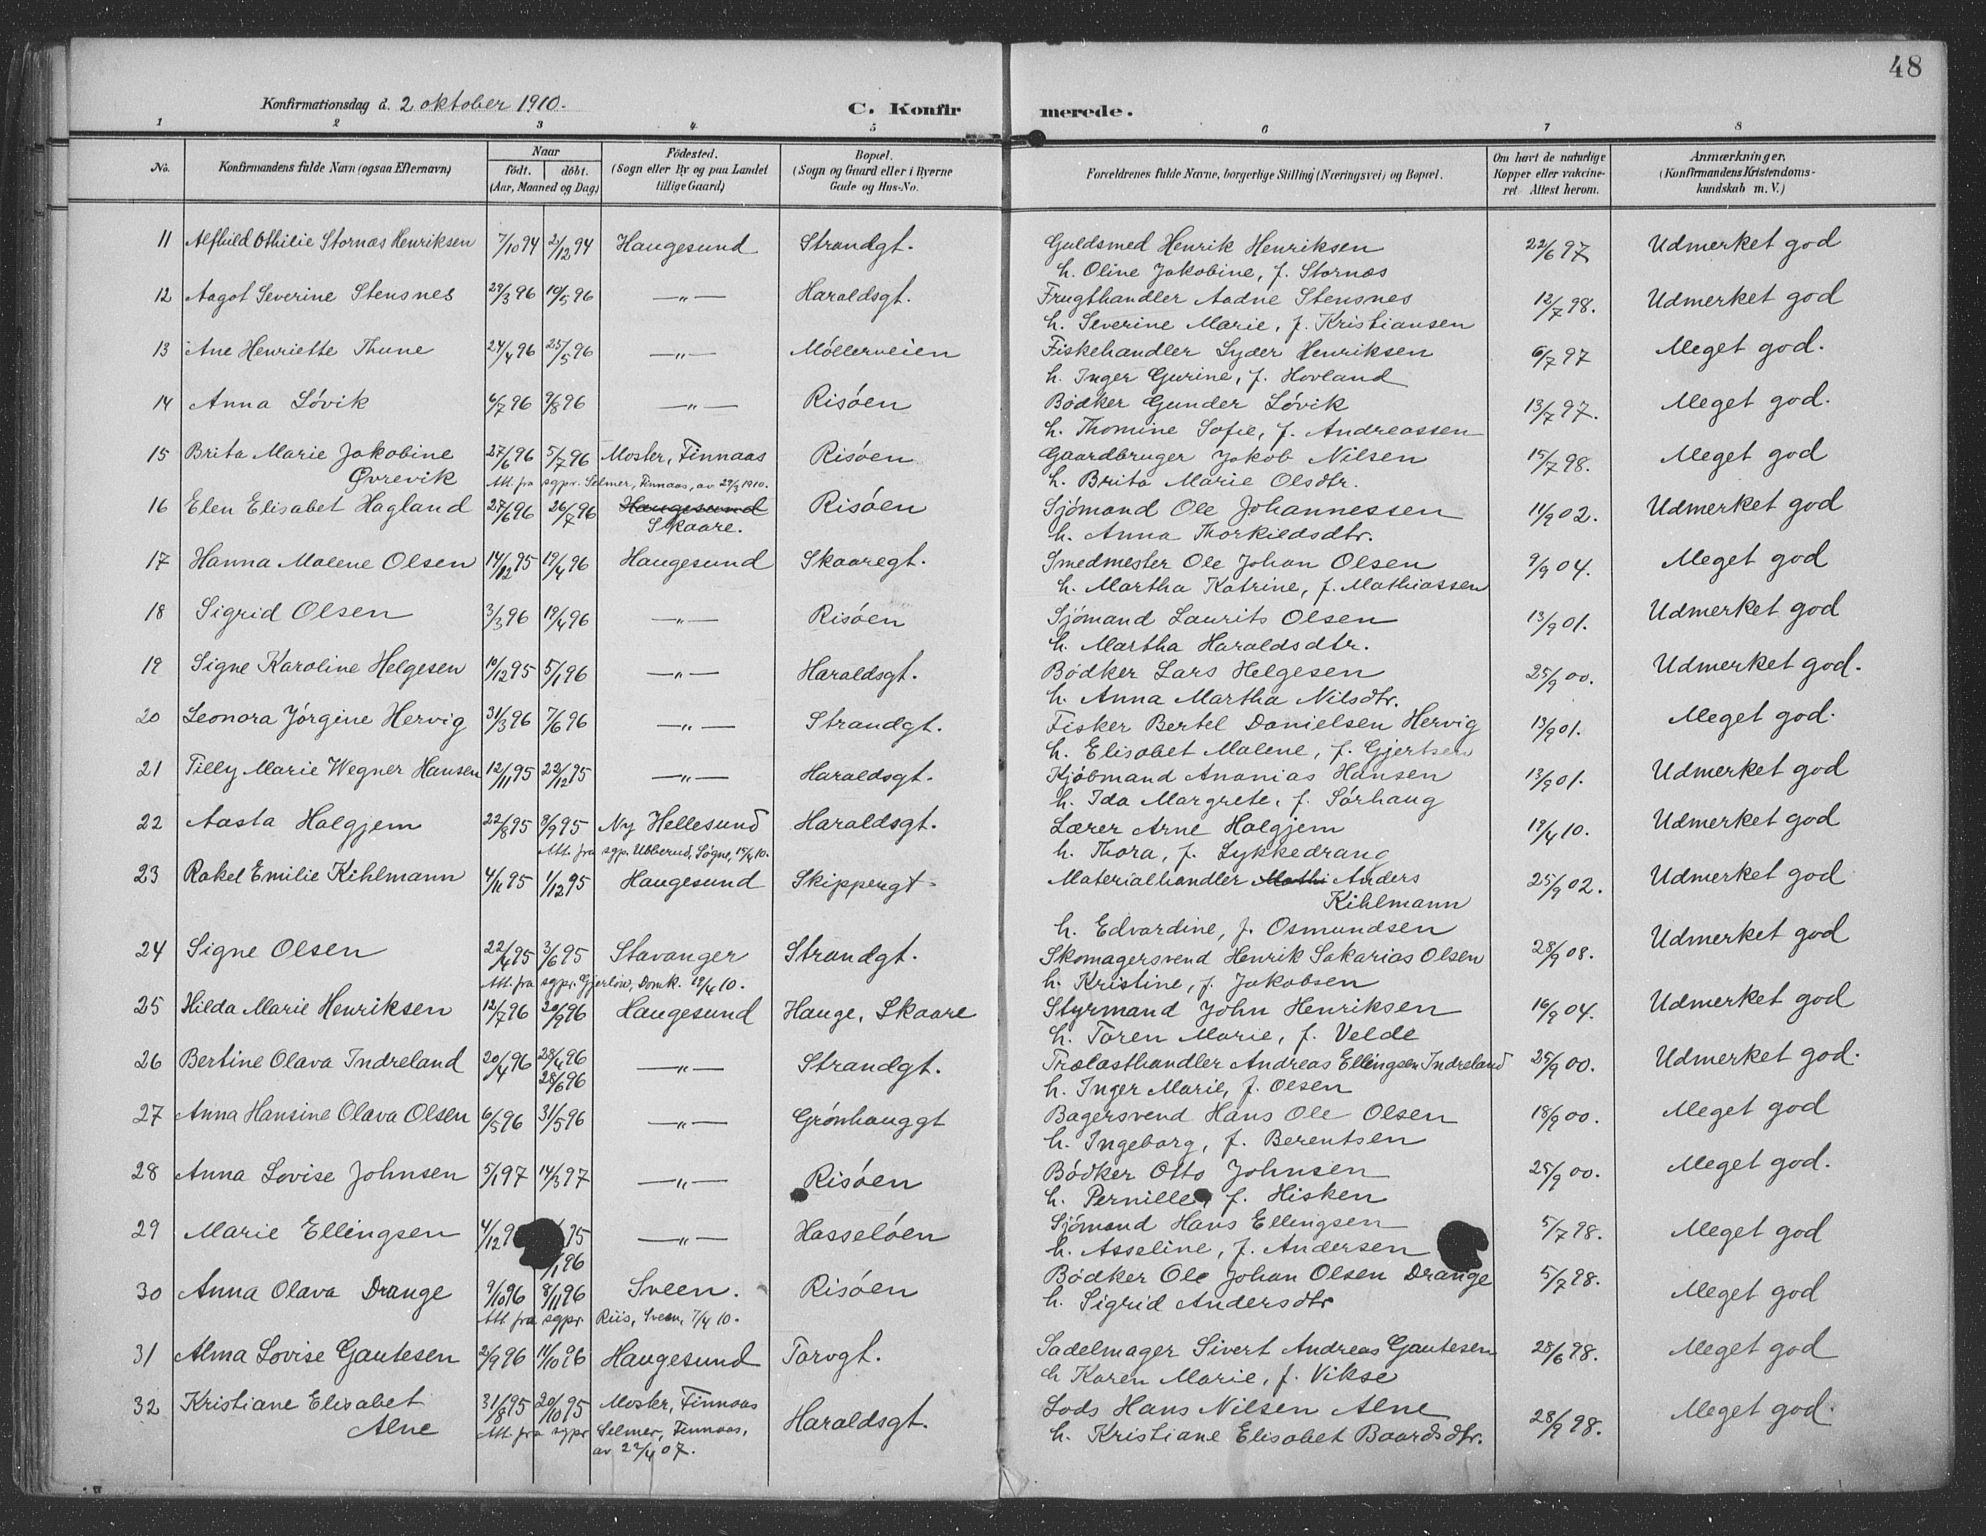 48
Konfirmationsdag d. 2 oktober 1910.
C. Konfirmerede.
1 2 3 4 5 6 7 8
No. Konfirmandens fulde Navn (ogsaa Efternavn) Naar födt. döbt. (Aar, Maaned og Dag) Födested. (Sogn eller By og paa Landet tillige Gaard) Bopæl. (Sogn og Gaard eller i Byerne Gade og Hus-No. Forældrenes fulde Navne, borgerlige Stilling (Næringsvei) og Bopæl. Om havt de naturlige Kopper eller vakcineret. Attest herom. Anmærkninger. (Konfirmandens Kristendomskundskab m. V.)
11 Alfhild Othilie Stornæs Henriksen 7/10 94 2/12 94 Haugesund Strandgt. Guldsmed Henrik Henriksen 22/6 97 Udmerket god
h. Oline Jakobine, f. Stornæs
12 Aagot Severine Stensnes 29/3 96 10/5 96 —"— Haraldsgt. Frugthandler Aadne Stensnes 12/7 98. Udmerket god
h. Severine Marie, f. Kristiansen
13 Ane Henriette Thune 24/4 96 25/5 96 —"— Möllerveien Fiskehandler Syder Henriksen 6/7 97 Meget god.
h. Inger Gurine, f. Hovland
14 Anna Lövik 6/7 96 9/8 96 —"— Risöen Bödker Gunder Lövik 13/7 97. Meget god.
h. Thomine Sofie, f. Andreassen
15 Brita Marie Jakobine 27/6 96 5/7 96 Moster, Finnaas Risöen Gaardbruger Jakob Nilsen 15/7 98. Meget god
Øvrevik Att. fra sgpr. Selmer, Finnaas, av 29/3 1910. h. Brita Marie Olsdtr.
16 Elen Elisabet Hagland 27/6 96 26/7 96 Haugesund Risöen Sjömand Ole Johannessen 11/9 02. Udmerket god
Skaare. h. Anna Thorkildsdtr.
17 Hanna Malene Olsen 14/12 95 19/4 96 Haugesund Skaaregt. Smedmester Ole Johan Olsen 9/9 04. Meget god
h. Martha Katrine, f. Mathiassen
18 Sigrid Olsen 3/3 96 19/4 96 —"— Risöen Sjömand Laurits Olsen 13/9 01. Udmerket god
h. Martha Haraldsdtr.
19 Signe Karoline Helgesen 10/12 95 5/1 96 —"— Haraldsgt. Bödker Lars Helgesen 25/9 00. Udmerket god.
h. Anna Martha Nilsdtr.
20 Leonora Jörgine Hervig 31/3 96 7/6 96 —"— Strandgt. Fisker Bertel Danielsen Hervig 13/9 01. Meget god.
h. Elisabet Malene, f. Gjertsen
21 Tilly Marie Wegner Hansen 12/11 95 22/12 95 —"— Haraldsgt. Kjöbmand Ananias Hansen 13/9 01. Udmerket god
h. Ida Margrete, f. Sörhaug
22 Aasta Holgjem 22/8 95 8/9 95 Ny Hellesund Haraldsgt. Lærer Arne Holgjem 19/4 10. Udmerket god
Att. fra sgpr. Ubberud, Søgne, 15/4 10. h. Thora, f. Lykkedrang
23 Rakel Emilie Kihlmann 4/11 95 1/12 95 Haugesund Skippergt. Materialhandler Mathi Anders 25/9 02. Udmerket god
Kihlmann
h. Edvardine, f. Osmundsen
24 Signe Olsen 22/4 95 3/6 95 Stavanger Strandgt. Skomagersvend Henrik Sakarias Olsen 28/9 08. Udmerket god
Att. fra sgpr. Gjerlöw, Domk. 19/4 10. h. Kristine, f. Jakobsen
25 Hilda Marie Henriksen 12/7 96 20/9 96 Haugesund Hauge, Skaare Styrmand John Henriksen 16/9 04. Udmerket god
h. Toren Marie, f. Velde
26 Bertine Olava Indreland 20/4 96 23/4 96 —"— Strandgt. Trælasthandler Andreas Ellingsen Indreland 25/9 00. Udmerket god.
28/6 96 h. Inger Marie, f. Olsen
27 Anna Hansine Olava Olsen 6/5 96 31/5 96 —"— Grönhauggt Bagersvend Hans Ole Olsen 18/9 00. Meget god
h. Ingeborg, f. Berentsen
28 Anna Lovise Johnsen 5/1 97 14/3 97 —"— Risöen Bödker Otto Johnsen 25/9 00. Meget god.
h. Pernille, f. Hisken
29 Marie Ellingsen 4/12 9 95 —"— Hasselöen Sjömand Hans Ellingsen 5/7 98. Meget god
/1 96 h. Asseline, f. Andersen
30 Anna Olava Drange 9/10 96 8/11 96 Sveen. Risöen Bödker Ole Johan Olsen Drange 5/7 98. Meget god
Att. fra sgpr Riis, Sveen, 7/4 10. h. Sigrid Andersdtr
31 Alma Lovise Gautesen 2/9 96 11/10 96 Haugesund Torvgt. Sadelmager Sivert Andreas Gautesen 28/6 98. Meget god
h Karen Marie, f. Vikse
32 Kristiane Elisabet 31/8 95 20/10 95 Moster, Finnaas Haraldsgt. Lods Hans Nilsen Alne 28/9 98. Meget god.
Alne Att. fra sgpr Selmer, Finnaas, h. Kristiane Elisabet Baardsdtr.
av 22/4 07.